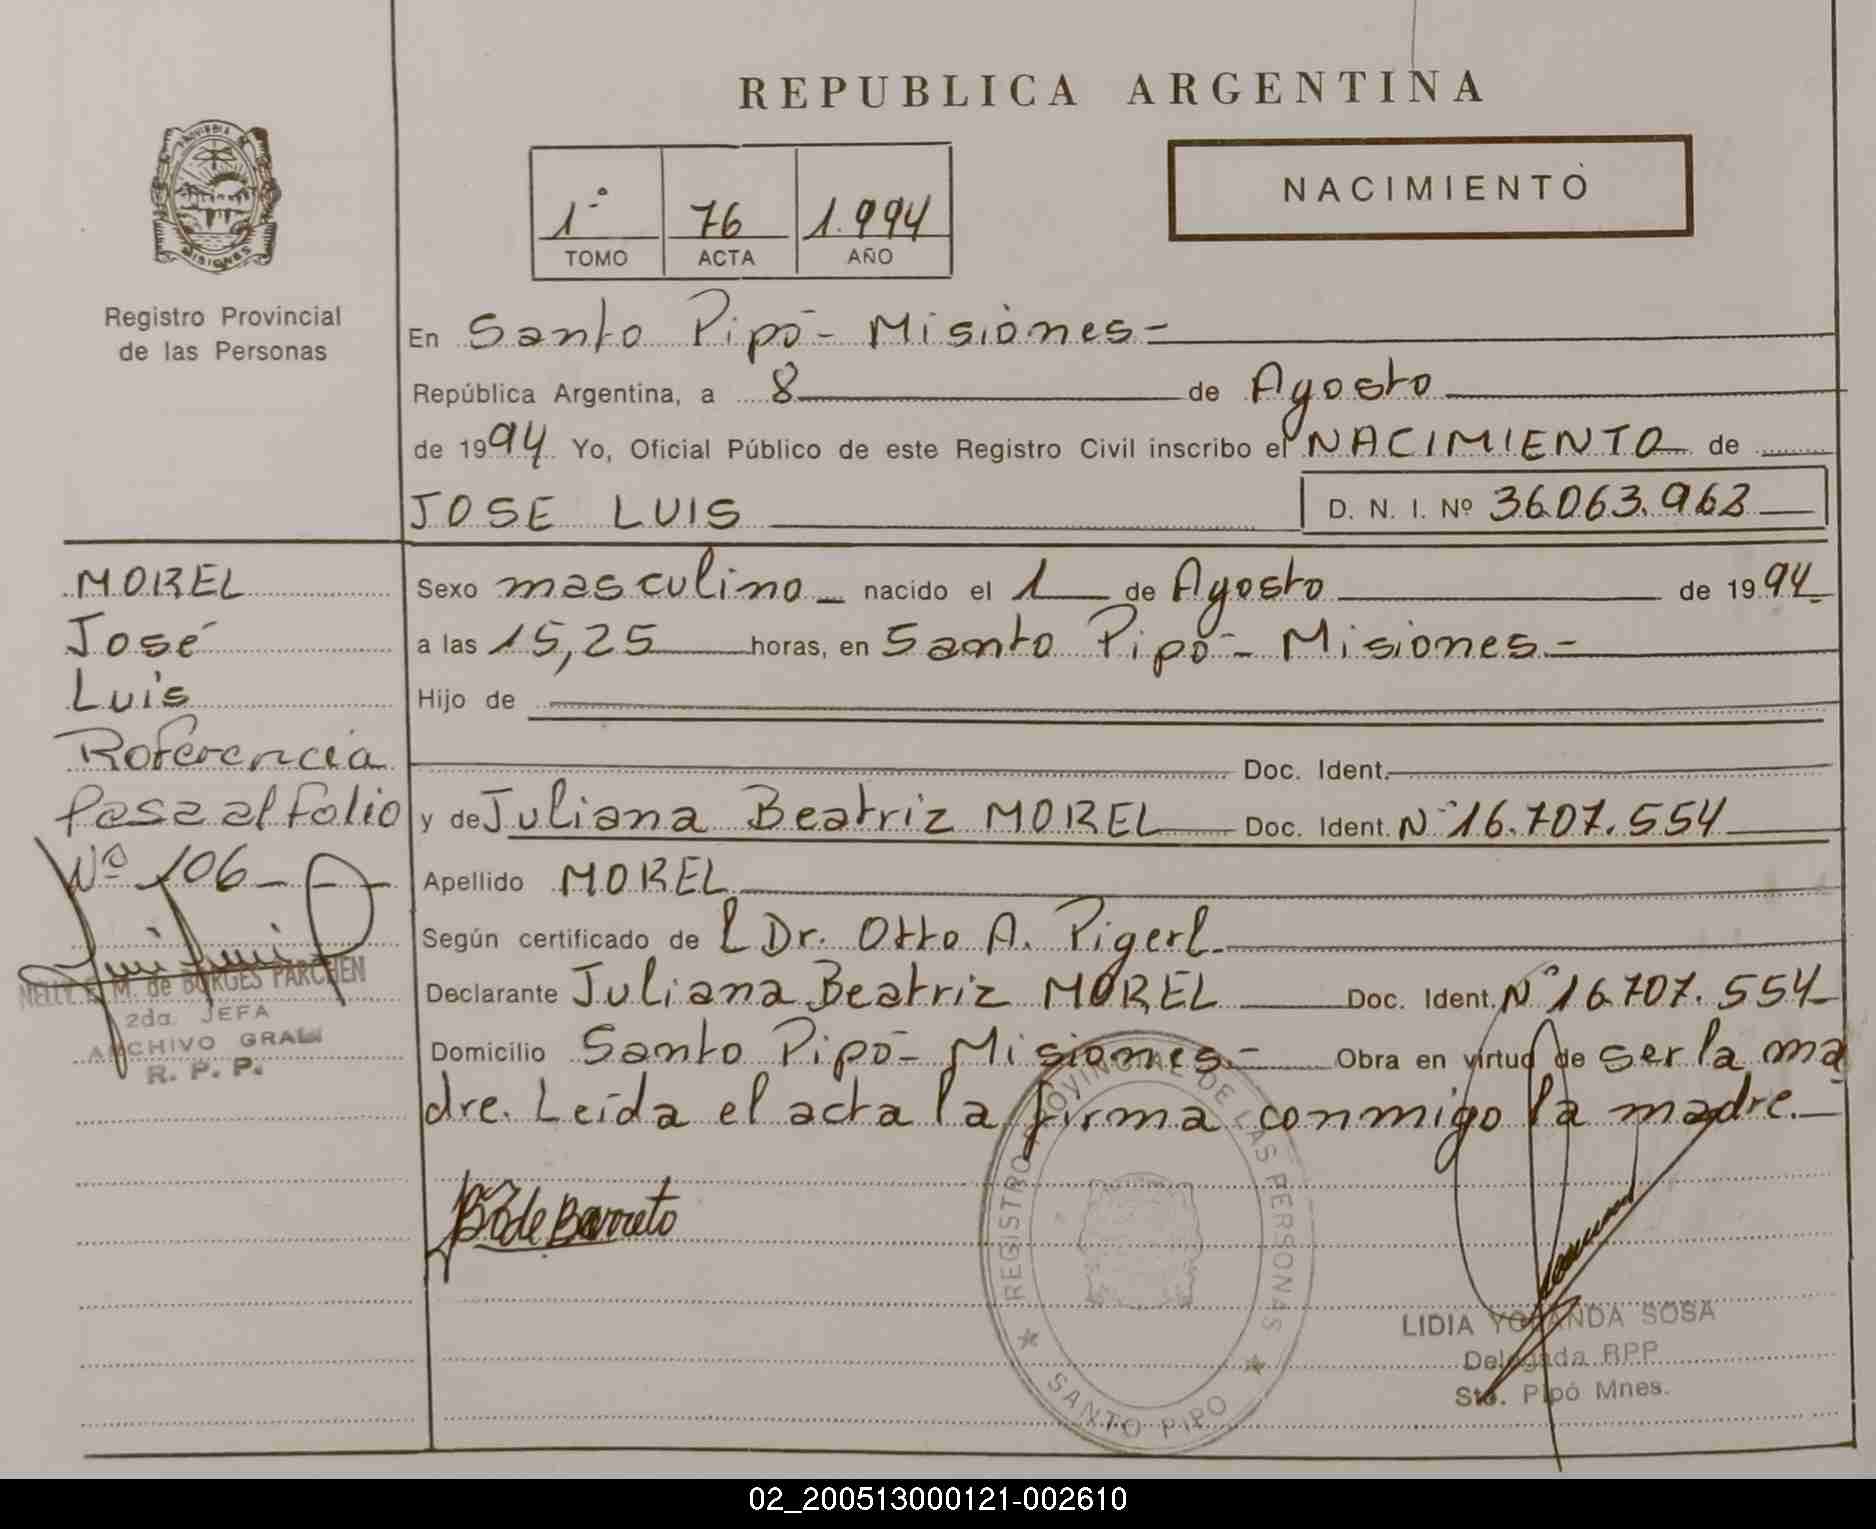 REPUBLICA ARGENTINA
PROVINCIA DE
MISIONES
Registro Provincial
de las Personas
1º 76 1.994
TOMO ACTA AÑO
NACIMIENTO
En Santo Pipó - Misiones -
República Argentina, a 8 de Agosto
de 1994 Yo, Oficial Público de este Registro Civil inscribo el NACIMIENTO de
JOSE LUIS D. N. I. Nº 36.063.963
MOREL
José
Luis
Referencia
Pasa al folio
Nº 106
NELLY E. M. de BORGES PARCHEN
2da. JEFA
ARCHIVO GRAL
R. P. P.
Sexo masculino nacido el 1 de Agosto de 1994
a las 15,25 horas, en Santo Pipó - Misiones -
Hijo de
Doc. Ident.
y de Juliana Beatriz MOREL Doc. Ident. Nº 16.707.554
Apellido MOREL
Según certificado de l Dr. Otto A. Pigerl
Declarante Juliana Beatriz MOREL Doc. Ident. Nº 16.707.554
Domicilio Santo Pipó - Misiones - Obra en virtud de ser la ma
dre. Leída el acta la firma conmigo la madre.
de Barreto
REGISTRO PROVINCIAL DE LAS PERSONAS
SANTO PIPO
LIDIA YOLANDA SOSA
Delegada RPP
Sto. Pipó Mnes.
02_200513000121-002610